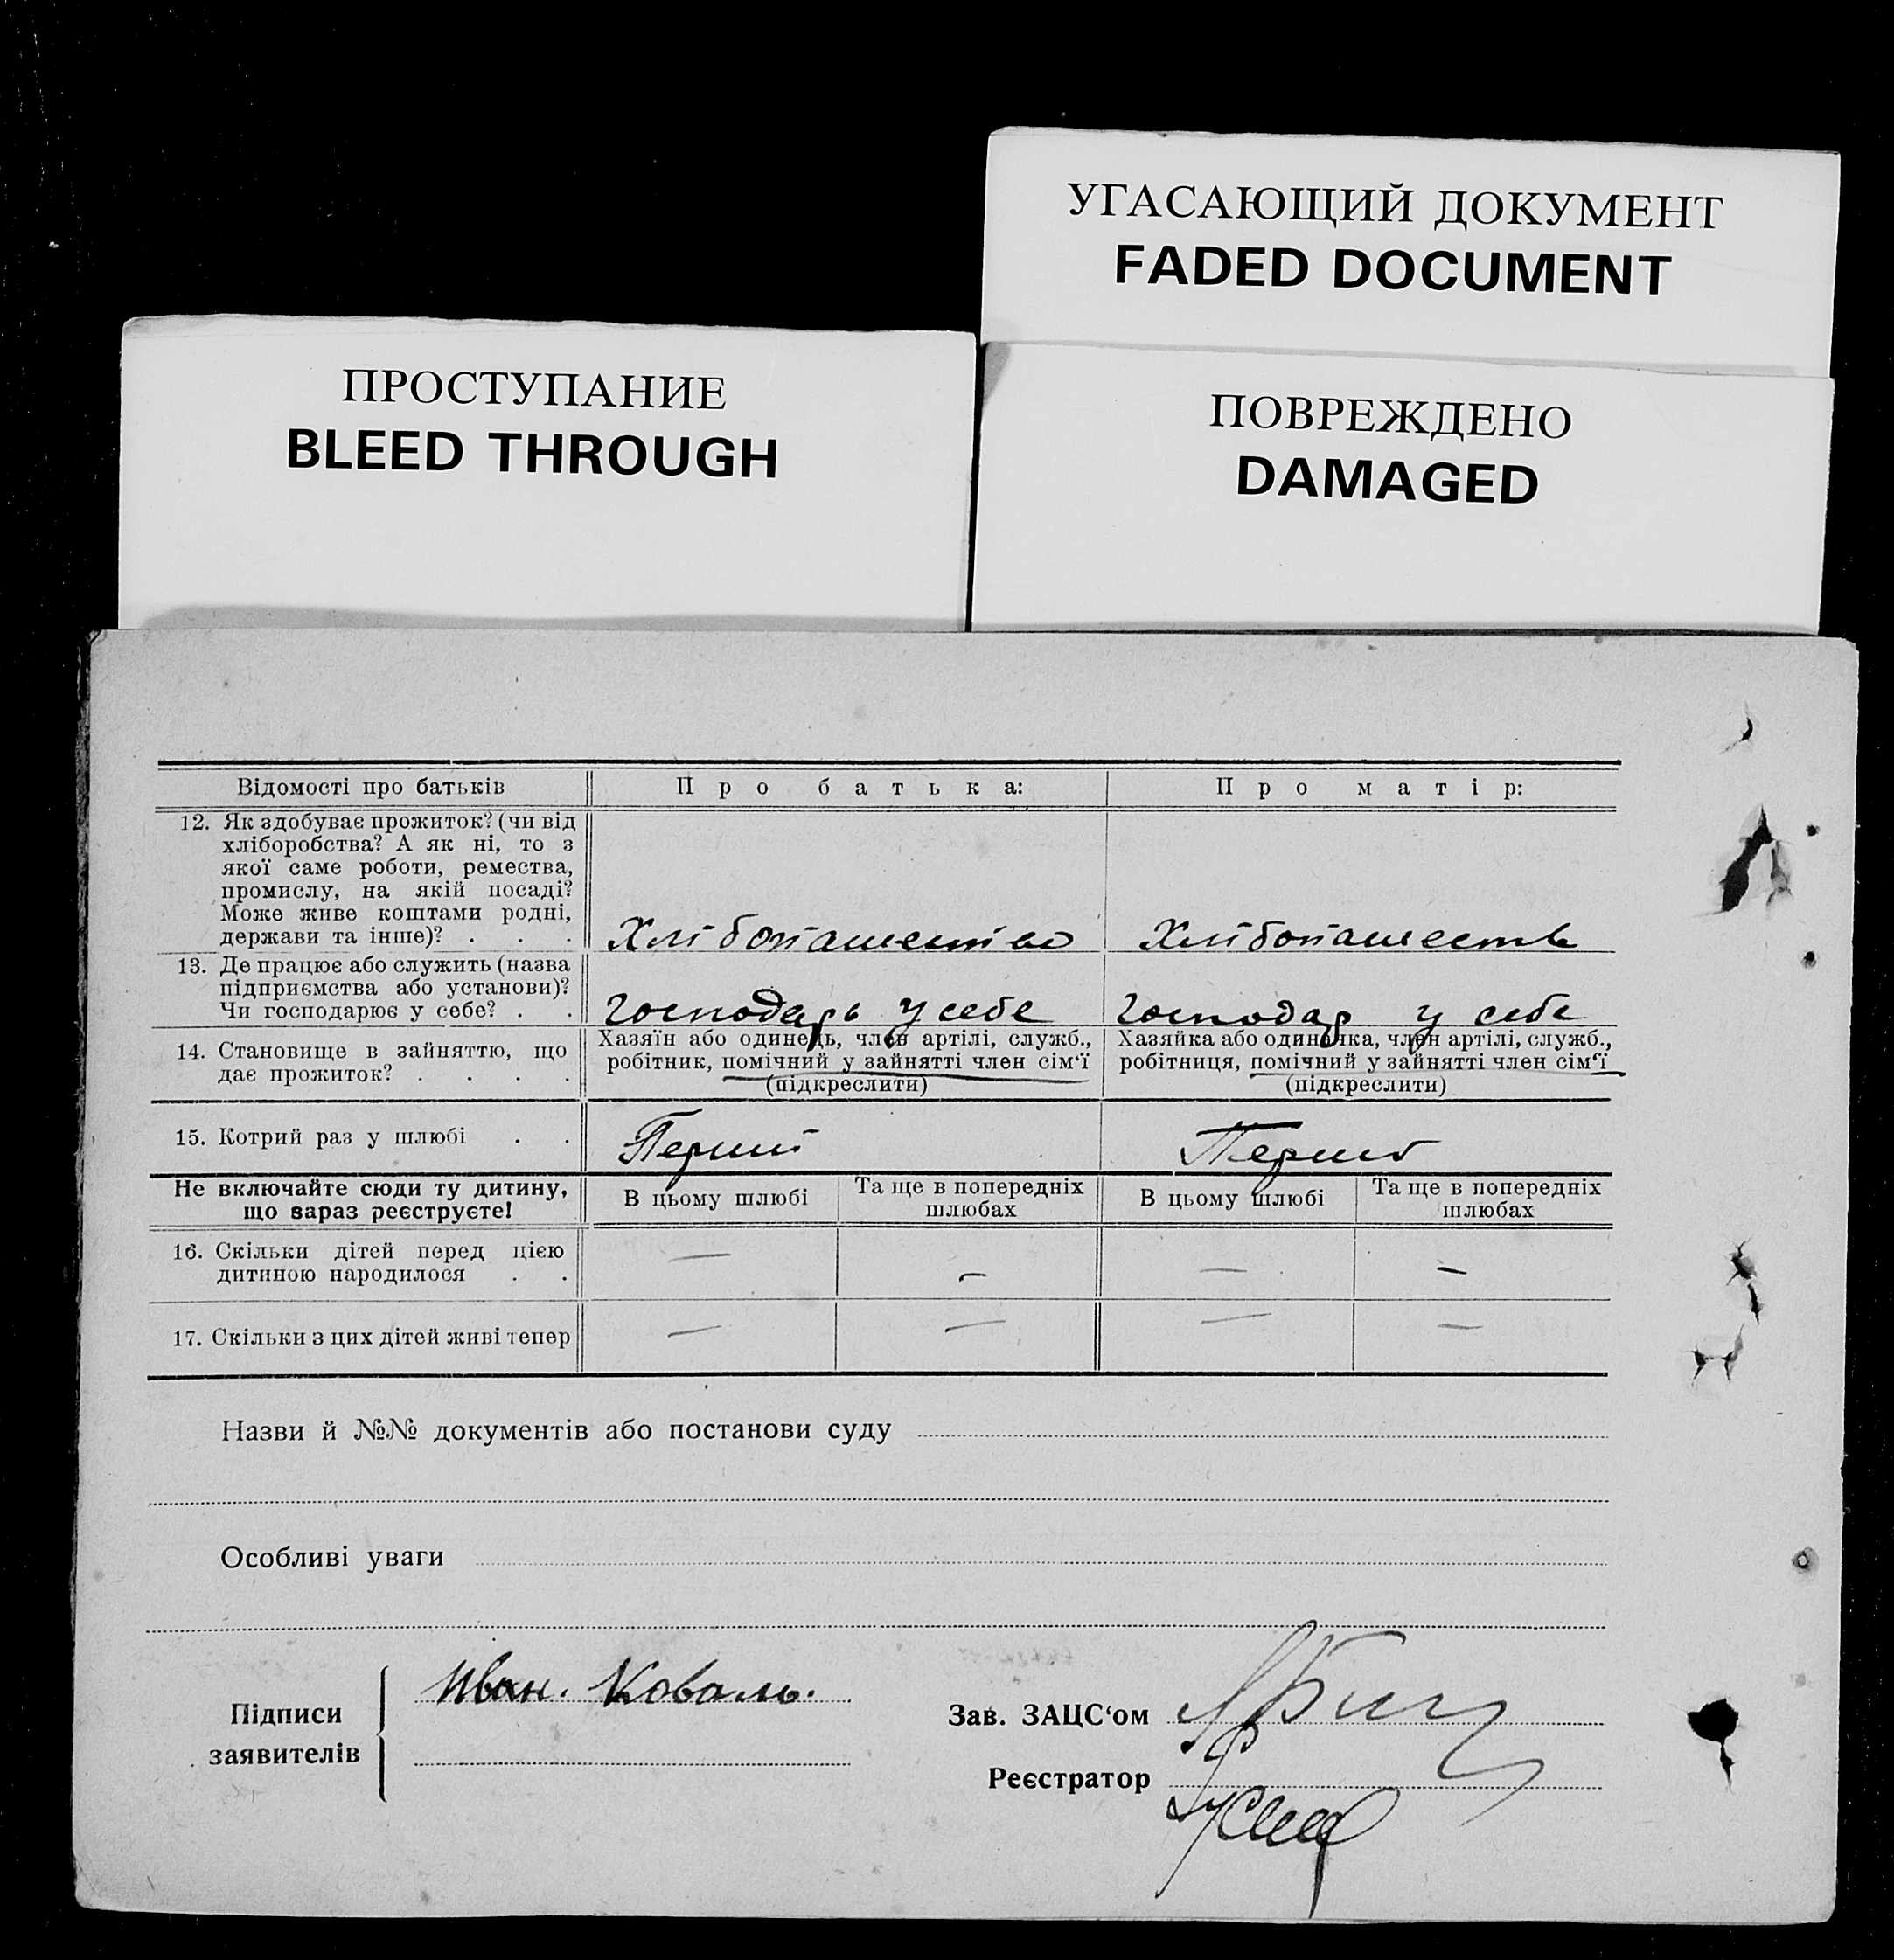 УГАСАЮЩИЙ ДОКУМЕНТ
FADED DOCUMENT
ПРОСТУПАНИЕ
BLEED THROUGH
ПОВРЕЖДЕНО
DAMAGED
Відомості про батьків
Про батька:
Про матір:
12. Як здобуває прожиток? (чи від
хліборобства? А як ні, то з
якої саме роботи, ремества,
промислу, на якій посаді?
Може живе коштами родні,
держави та інше)? . . .
Хлібопашество
Хлібопашеств
13. Де працює або служить (назва
підприємства або установи)?
Чи господарює у себе? . .
Господарь у себе
Господар у себе
14. Становище в зайняттю, що
дає прожиток? . . . .
Хазяїн або одинець, член артілі, служб.,
робітник, помічний у зайнятті член сім‘ї
(підкреслити)
Хазяйка або одиначка, член артілі, служб.,
робітниця, помічний у зайнятті член сім‘ї
(підкреслити)
15. Котрий раз у шлюбі . .
Перший
Не включайте сюди ту дитину,
що зараз реєструєте!
В цьому шлюбі
Та ще в попередніх
шлюбах
В цьому шлюбі
Та ще в попередніх
шлюбах
16. Скільки дітей перед цією
дитиною народилося . .
— — — —
17. Скільки з цих дітей живі тепер
— — — —
Назви й №№ документів або постанови суду
Особливі уваги
Підписи
заявителів
Иван. Коваль.
Зав. ЗАЦС‘ом
Реєстратор